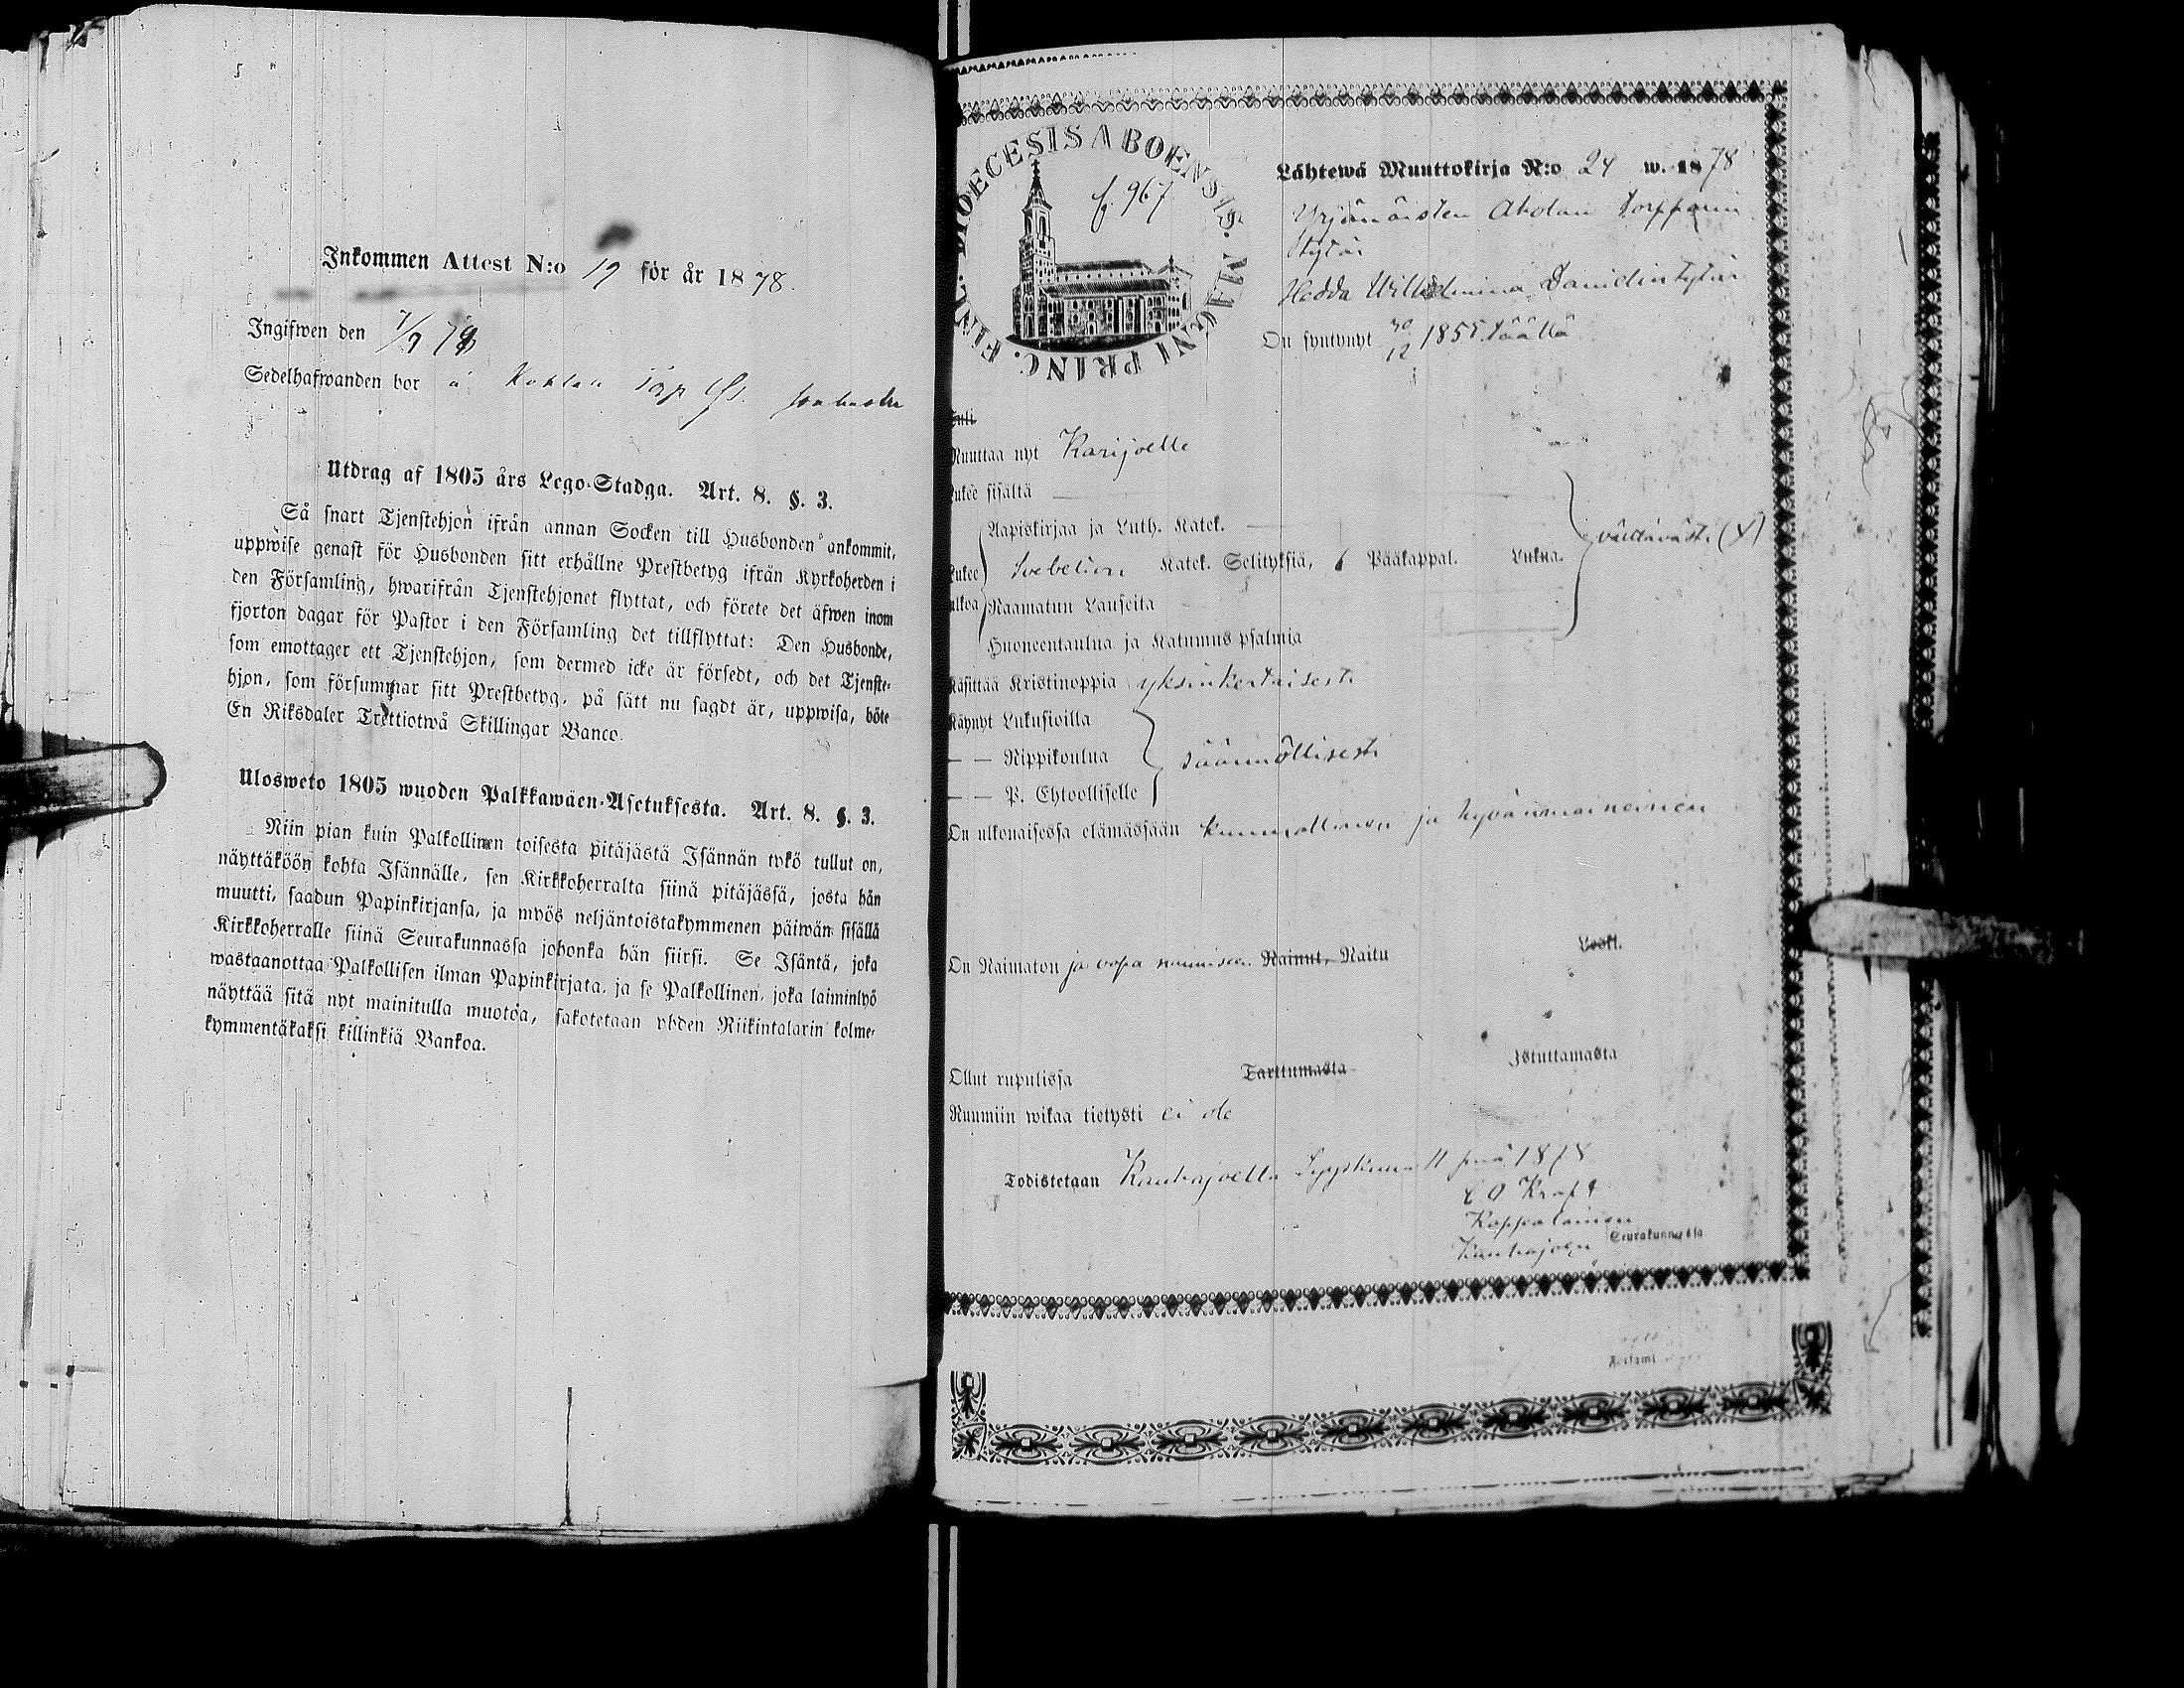 Inkommen Attest N:o 19 för år 1878.
Ingifwen den 7/9 78
Sedelhafwanden bor å
Utdrag af 1805 års Lego-Stadga. Art. 8. §. 3.
Så snart Tjenstehjon ifrån annan Socken till Husbonden ankommit,
uppwise genast för Husbonden sitt erhållne Prestbetyg ifrån Kyrkoherden i
den Församling, hwarifrån Tjenstehjonet flyttat, och förete det äfwen inom
fjorton dagar för Pastor i den Församling det tillflyttat: Den Husbonde,
som emottager ett Tjenstehjon, som dermed icke är försedt, och det Tjenste-
hjon, som försummar sitt Prestbetyg, på sätt nu sagdt är, uppwisa, böte
En Riksdaler Trettiotwå Skillingar Banco.
Ulosweto 1805 wuoden Palkkawäen-Asetuksesta. Art. 8. §. 3.
Niin pian kuin Palkollinen toisesta pitäjästä Isännän tykö tullut on,
näyttäköön kohta Isännälle, sen Kirkkoherralta siinä pitäjässä, josta hän
muutti, saadun Papinkirjansa, ja myös neljäntoistakymmenen päiwän sisällä
Kirkkoherralle siinä Seurakunnassa johonka hän siirsi. Se Isäntä, joka
wastaanottaa Palkollisen ilman Papinkirjata, ja se Palkollinen, joka laiminlyö
näyttää sitä nyt mainitulla muotoa, sakotetaan yhden Riikintalarin kolme-
kymmentäkaksi killinkiä Bankoa.
FINL. DIOECESIS ABOENSIS. MAGNI PRINC.
f. 967
Lähtewä Muuttokirja N:o 24 w. 1878
Yrjänäisten Aholan torpparin
tytär
Hedda Wilhelmina Danielintytär
On syntynyt 30/12 1855 täällä
Tuli
Muuttaa nyt Karijoelle
Lukee sisältä
Aapiskirjaa ja Luth. Katek.
Lukee ulkoa Svebelion Katek. Selityksiä, 6 Pääkappal. Lukua. välttäväst. (X)
Raamatun Lauseita
Huoneentaulua ja Katumus psalmia
Käsittää Kristinoppia yksinkertaisesti
Käynyt Lukusioilla
— — Rippikoulua säännöllisesti
— — P. Ehtoolliselle
On ulkonaisessa elämässään kunniallinen ja hyvänmaineinen
On Naimaton ja vapa naimiseen Nainut, Naitu Leski.
Ollut rupulissa Tarttumasta Istuttamasta
Ruumiin wikaa tietysti ei ole
Todistetaan Kauhajoella Syyskuun 11 pnä 1878
C O Kraft
Kappalainen
Kauhajoen Seurakunnassa